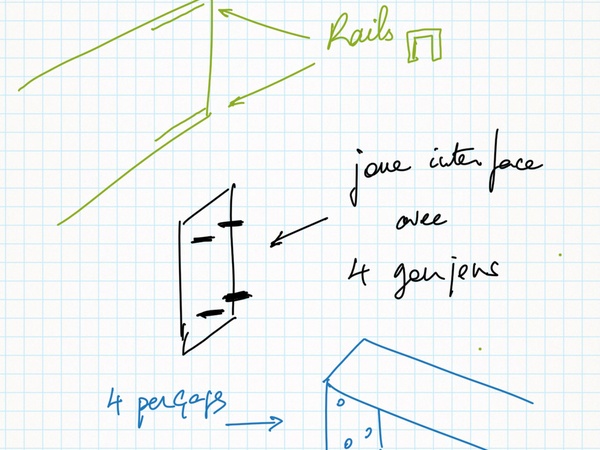 Rails
joue interface
avec
4 goujons
4 perçages